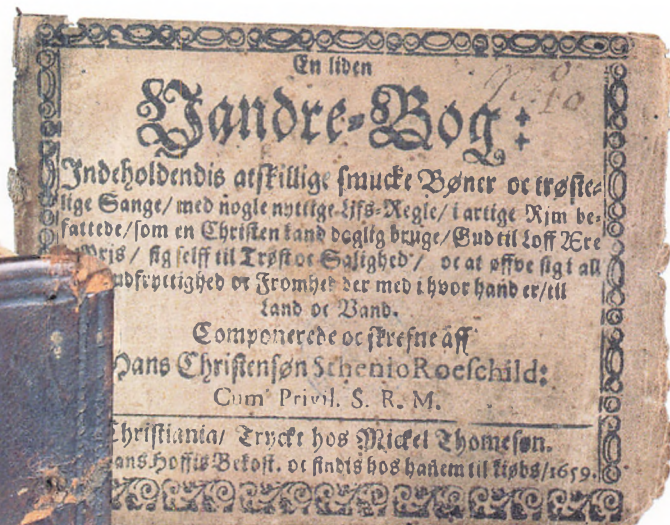 En liden
Vandre-Bog:
Indeholdendis atskillige smucke Bøner oc trøste-
lige Sange/ med nogle nyttige Lifs-Regle/ i artige Rjm be-
fattede/ som en Christen kand daglig bruge/ Gud til Loff Ære
Prjs/ sig selff til Trøst oc Salighed/ oc at øffve sig i all
udfryctighed oc Fromhed der med i hvor hand er/ til
Land oc Vand.
Componerede oc skrefne aff
Hans Christensøn Sthenio Roeschild:
Cum Privil. S. R. M.
Christiania/ Tryckt hos Mickel Thomesøn.
ans Hoffis Bekost. oc findis hos hañem til kiøbs/ 1659.